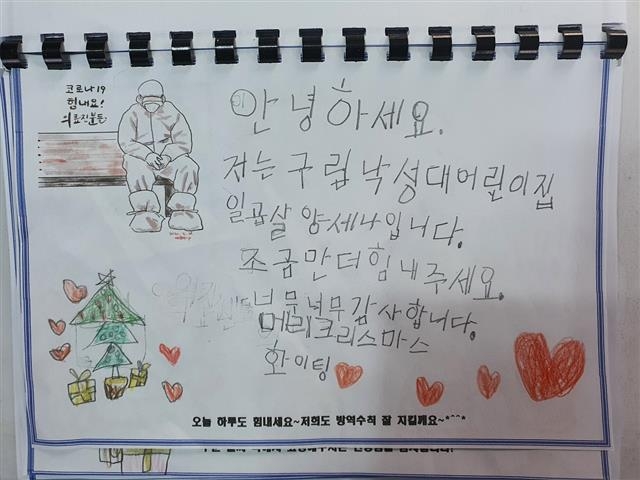 코로나19
힘내요!
의료진분들
안녕하세요.
저는 구립낙성대어린이집
일곱살 양세나입니다.
조금만더힘내주세요.
너무너무감사합니다.
메리크리스마스
화이팅
오늘 하루도 힘내세요~저희도 방역수칙 잘 지킬께요~*^^*